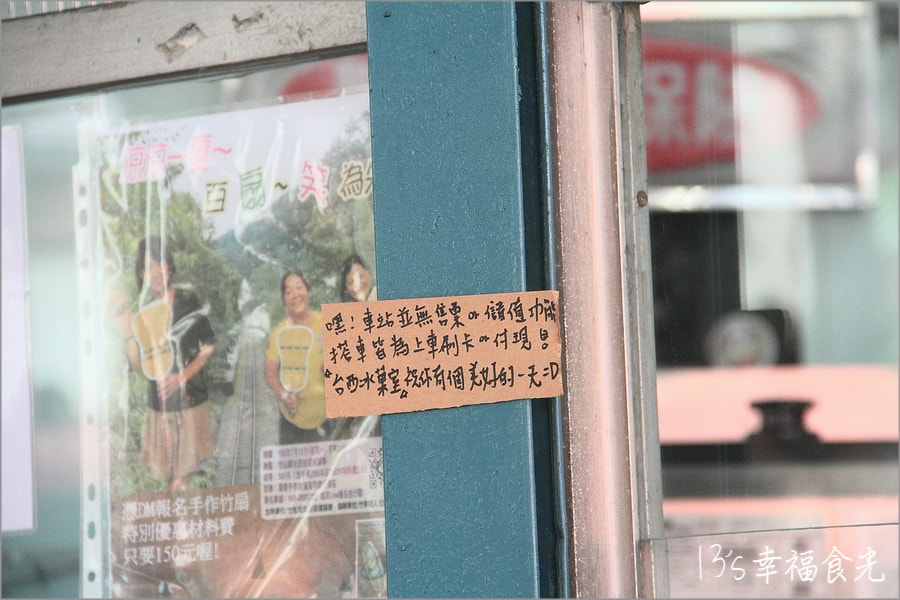 涼涼一夏~
百扇~笑為
嘿!車站並無售票or儲值功能
搭車皆為上車刷卡or付現呂
「台西冰菓室」祝你有個美好的一天=D
憑DM報名手作竹扇
特別優惠材料費
只要150元喔!
保險
13's幸福食光